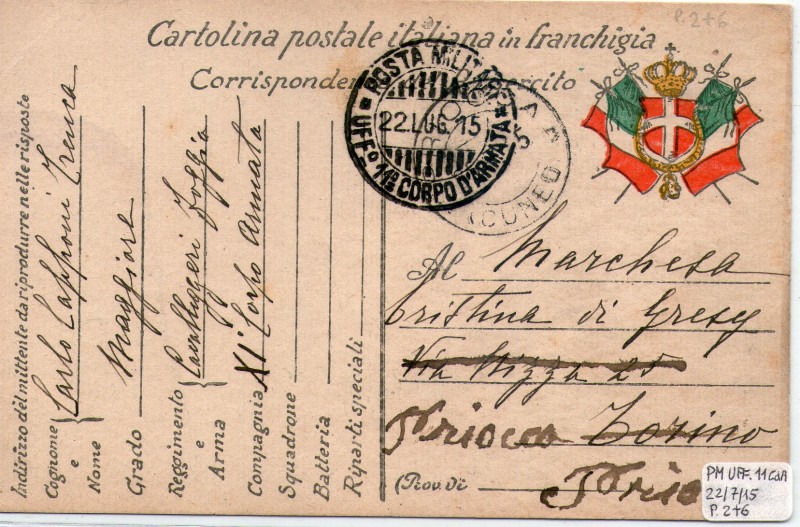 P. 2+6
Cartolina postale italiana in franchigia
POSTA MILITARE
22.LUG.15
UFFº 11º CORPO D'ARMATA
CUNEO
Al Marchesa
Cristina di Gresy
Via Nizza 25
Priocca Torino
(Prov. di
Indirizzo del mittente da riprodurre nelle risposte
Cognome e Nome { Carlo Capponi Trenca
Grado Maggiore
Reggimento e Arma { Cavalleggeri Foggia
Compagnia XIº Corpo Armata
Squadrone
Batteria
Riparti speciali
PM UFF. 11 CdA
22/7/15
P. 2+6